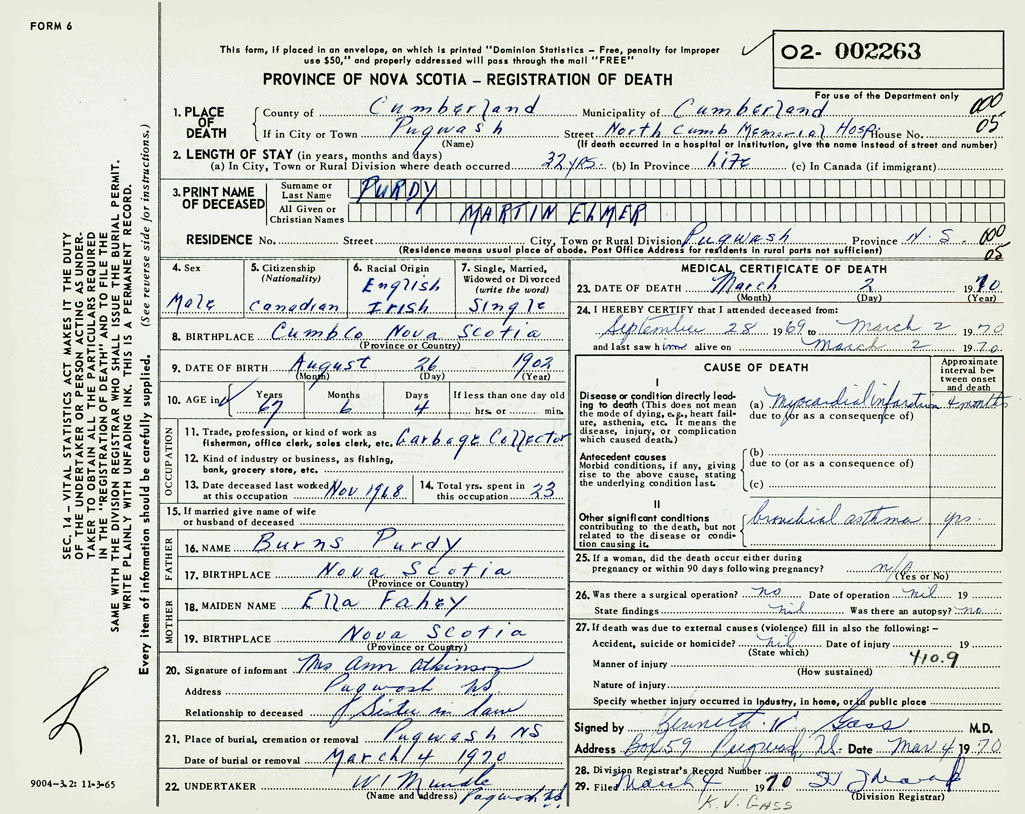 FORM 6
This form, if placed in an envelope, on which is printed "Dominion Statistics – Free, penalty for improper
use $50," and properly addressed will pass through the mail "FREE"
02- 002263
PROVINCE OF NOVA SCOTIA – REGISTRATION OF DEATH
For use of the Department only
1. PLACE OF DEATH
County of Cumberland Municipality of Cumberland 000
If in City or Town Pugwash Street North Cumb Memorial Hosp House No. 05
(Name) (If death occurred in a hospital or institution, give the name instead of street and number)
2. LENGTH OF STAY (in years, months and days)
(a) In City, Town or Rural Division where death occurred 32 yrs. (b) In Province Life (c) In Canada (if immigrant)
3. PRINT NAME OF DECEASED
Surname or Last Name PURDY
All Given or Christian Names MARTIN ELMER
RESIDENCE No. Street City, Town or Rural Division Pugwash Province N.S. 000
(Residence means usual place of abode. Post Office Address for residents in rural parts not sufficient) 05
4. Sex Male
5. Citizenship (Nationality) Canadian
6. Racial Origin English Irish
7. Single, Married, Widowed or Divorced (write the word) Single
8. BIRTHPLACE Cumb Co Nova Scotia
(Province or Country)
9. DATE OF BIRTH August 26 1902
(Month) (Day) (Year)
10. AGE in Years 67 Months 6 Days 4 If less than one day old hrs. or min.
OCCUPATION
11. Trade, profession, or kind of work as
fisherman, office clerk, sales clerk, etc. Garbage Collector
12. Kind of industry or business, as fishing,
bank, grocery store, etc.
13. Date deceased last worked at this occupation Nov 1968
14. Total yrs. spent in this occupation 23
15. If married give name of wife
or husband of deceased
FATHER
16. NAME Burns Purdy
17. BIRTHPLACE Nova Scotia
(Province or Country)
MOTHER
18. MAIDEN NAME Ella Fahey
19. BIRTHPLACE Nova Scotia
(Province or Country)
20. Signature of informant Mrs Ann Atkinson
Address Pugwash NS
Relationship to deceased Sister in law
21. Place of burial, cremation or removal Pugwash NS
Date of burial or removal March 4 1970
22. UNDERTAKER W I Mundle
(Name and address) Pugwash N.S.
MEDICAL CERTIFICATE OF DEATH
23. DATE OF DEATH March 2 1970
(Month) (Day) (Year)
24. I HEREBY CERTIFY that I attended deceased from:
September 28 1969 to March 2 1970
and last saw him alive on March 2 1970
CAUSE OF DEATH
Approximate interval between onset and death
I
Disease or condition directly leading
to death (This does not mean
the mode of dying, e.g., heart failure,
asthenia, etc. It means the
disease, injury, or complication
which caused death.)
(a) Myocardial infarction 4 months
due to (or as a consequence of)
Antecedent causes
Morbid conditions, if any, giving
rise to the above cause, stating
the underlying condition last.
(b)
due to (or as a consequence of)
(c)
II
Other significant conditions
contributing to the death, but not
related to the disease or condition
causing it.
bronchial asthma yrs.
25. If a woman, did the death occur either during
pregnancy or within 90 days following pregnancy? n/a
(Yes or No)
26. Was there a surgical operation? no Date of operation nil 19
State findings nil Was there an autopsy? no
27. If death was due to external causes (violence) fill in also the following: –
Accident, suicide or homicide? nil Date of injury 19
(State which) 410.9
Manner of injury
(How sustained)
Nature of injury
Specify whether injury occurred in Industry, in home, or in public place
Signed by Kenneth V Gass M.D.
Address Box 59 Pugwash, N.S. Date Mar 4 1970
28. Division Registrar's Record Number
29. Filed March 4 1970
(Division Registrar)
K.V. GASS
SEC. 14 – VITAL STATISTICS ACT MAKES IT THE DUTY
OF THE UNDERTAKER OR PERSON ACTING AS UNDER-
TAKER TO OBTAIN ALL THE PARTICULARS REQUIRED
IN THE "REGISTRATION OF DEATH" AND TO FILE THE
SAME WITH THE DIVISION REGISTRAR WHO SHALL ISSUE THE BURIAL PERMIT.
WRITE PLAINLY WITH UNFADING INK. THIS IS A PERMANENT RECORD.
Every item of information should be carefully supplied. (See reverse side for instructions.)
9004–3.2: 11-3-65